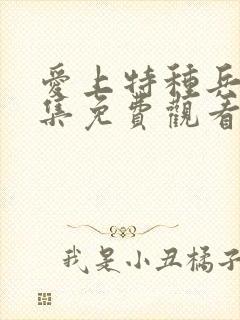 愛上特種兵
集免費觀看
我是小丑橘子